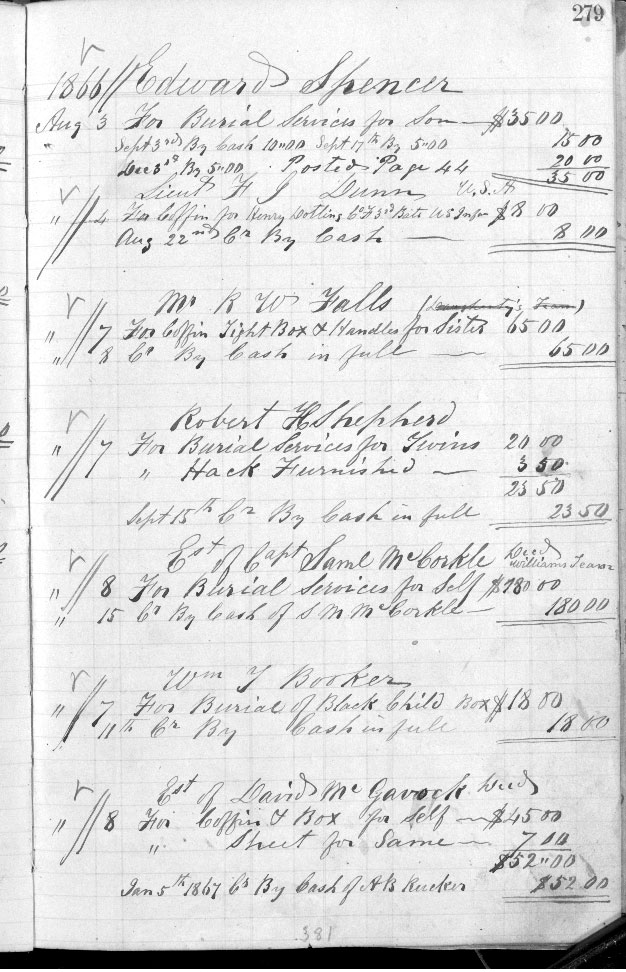 279
1866 Edward Spencer
Aug 3 For Burial Services for Son — $35 00
" Sept 3rd By Cash 10"00 Sept 17th By 5"00 15 00
Dec 3rd By 5"00 . Posted Page 44 20 00
35 00
Lieut H J Dunn U.S.A
" 4 For Coffin for Henry Dotling Co F 3rd Batt US Infr $8 00
Aug 22nd Cr By Cash — 8 00
Mr R W Falls
" 7 For Coffin Tight Box & Handles for Sister 65 00
" 8 Cr By Cash in full — 65 00
Robert H Shepherd
" 7 For Burial Services for Twins 20 00
" Hack Furnished — 3 50
23 50
Sept 15th Cr By Cash in full 23 50
Est of Capt Saml McCorkle Decd
Williams
" 8 For Burial Services for Self $180 00
" 15 Cr By Cash of S M McCorkle — 180 00
Wm T Booker
" 7 For Burial of Black Child Box $18 00
" 11th Cr By Cash in full 18 00
Est of David McGavock Decd
" 8 For Coffin & Box for Self — $45 00
" Sheet for Same — 7 00
$52"00
Jan 5th 1867 Cr By Cash of A B Rucker $52 00
381